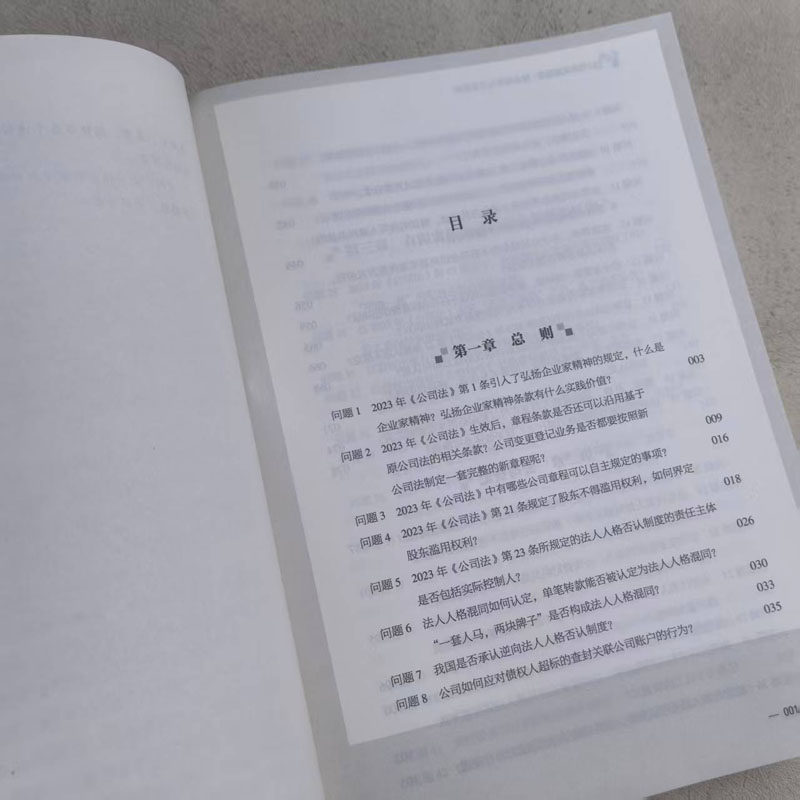 目 录
第一章 总 则
问题 1 2023 年《公司法》第 1 条引入了弘扬企业家精神的规定，什么是
企业家精神？弘扬企业家精神条款有什么实践价值？ 003
问题 2 2023 年《公司法》生效后，章程条款是否还可以沿用基于
原公司法的相关条款？公司变更登记业务是否都要按照新
公司法制定一套完整的新章程呢？ 009
问题 3 2023 年《公司法》中有哪些公司章程可以自主规定的事项？ 016
问题 4 2023 年《公司法》第 21 条规定了股东不得滥用权利，如何界定
股东滥用权利？ 018
问题 5 2023 年《公司法》第 23 条所规定的法人人格否认制度的责任主体
是否包括实际控制人？ 026
问题 6 法人人格混同如何认定，单笔转款能否被认定为法人人格混同？
“一套人马，两块牌子”是否构成法人人格混同？ 030
问题 7 我国是否承认逆向法人人格否认制度？ 033
问题 8 公司如何应对债权人超标的查封关联公司账户的行为？ 035
— 001